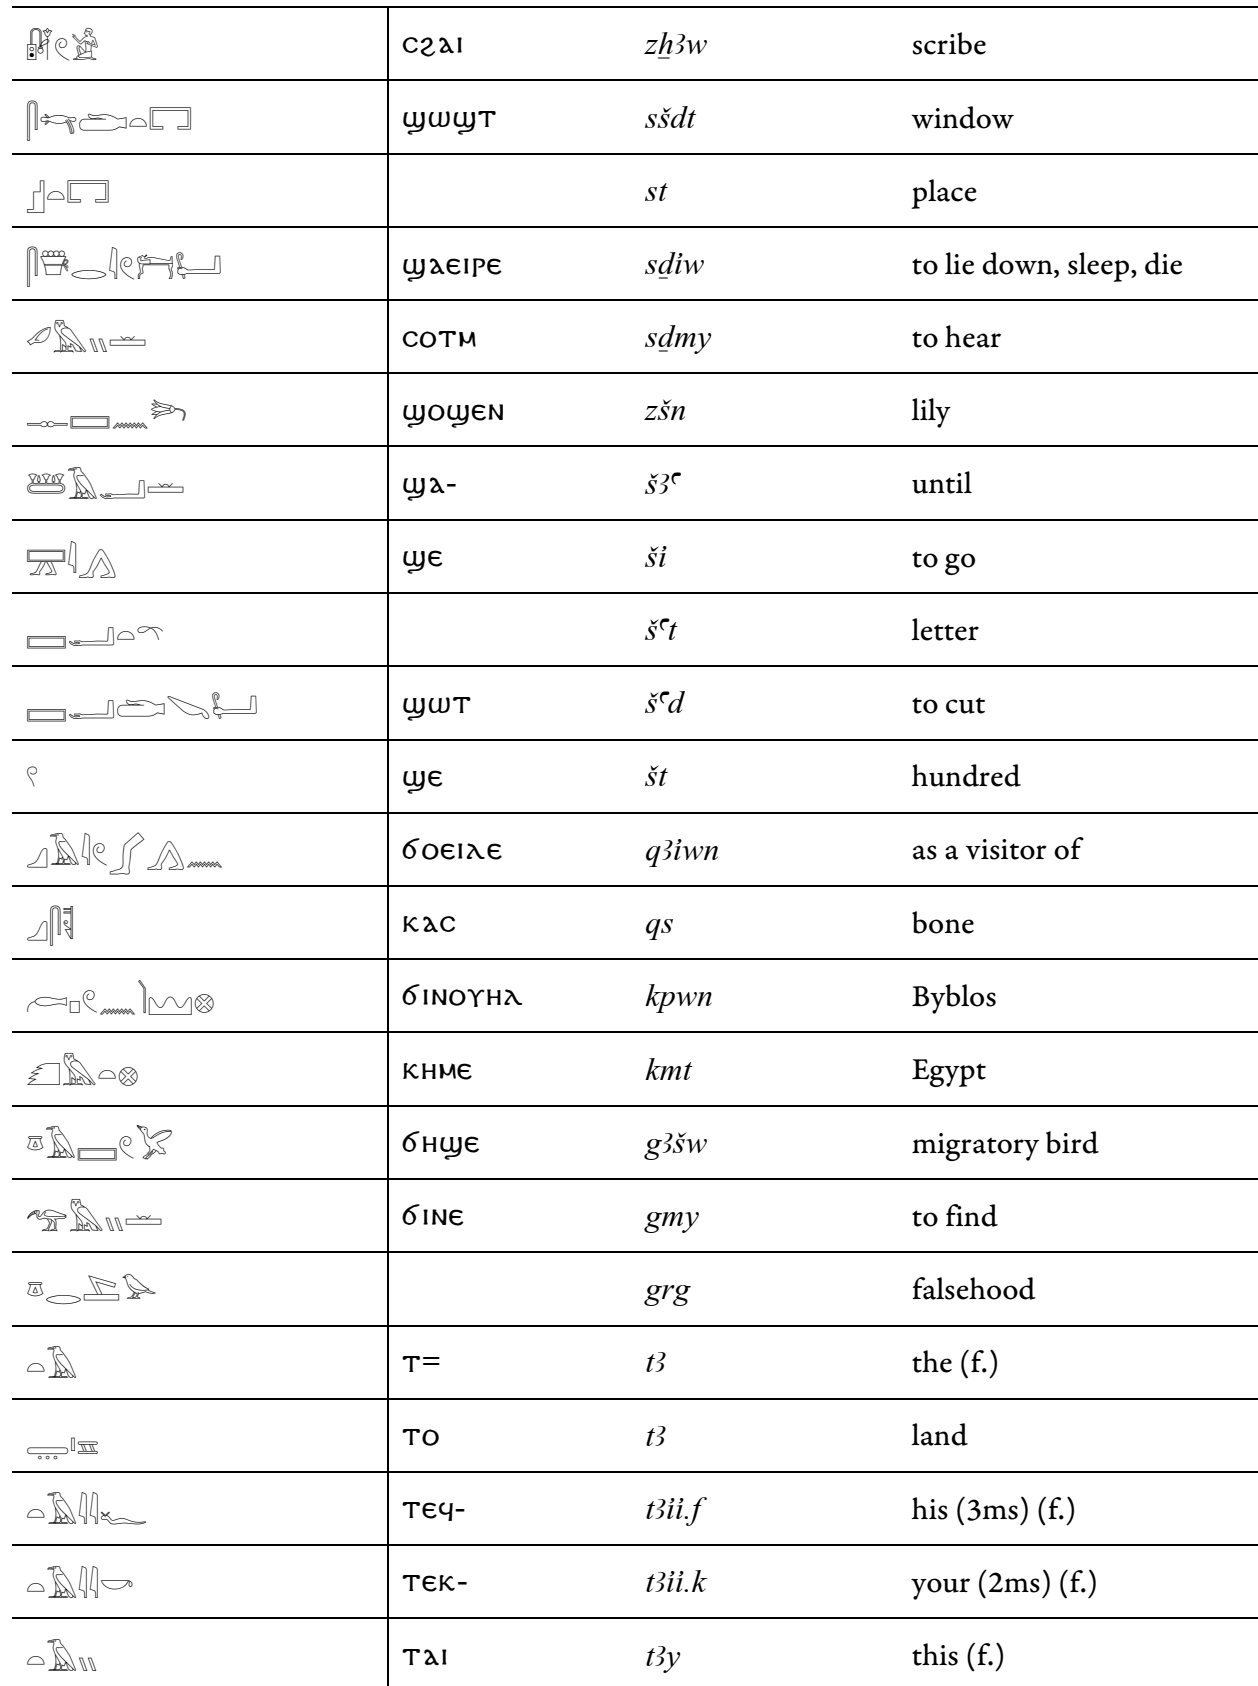 𓏞𓏲𓀀 ⲥϩⲁⲓ zẖꜣw scribe
ϣⲱϣⲧ sšdt window
𓊨𓏏𓉐 st place
ϣⲁⲉⲓⲣⲉ sḏı͗w to lie down, sleep, die
𓄔𓅓𓏭𓏛 ⲥⲟⲧⲙ sḏmy to hear
𓊃𓈙𓈖𓆸 ϣⲟϣⲉⲛ zšn lily
𓆷𓄿𓂝𓏛 ϣⲁ- šꜣꜥ until
𓈝𓇋𓂻 ϣⲉ šı͗ to go
𓈙𓂝𓏏𓍼 šꜥt letter
𓈙𓂝𓂧𓌪𓂡 ϣⲱⲧ šꜥd to cut
𓍢 ϣⲉ št hundred
𓈎𓄿𓇋𓏲𓂾𓂻𓈖 ϭⲟⲉⲓⲗⲉ qꜣı͗wn as a visitor of
𓈎𓋴𓌟 ⲕⲁⲥ qs bone
𓊸𓊪𓏲𓈖𓌙𓈉𓊖 ϭⲓⲛⲟⲩⲏⲗ kpwn Byblos
𓆎𓅓𓏏𓊖 ⲕⲏⲙⲉ kmt Egypt
𓎼𓄿𓈙𓏲𓅯 ϭⲏϣⲉ gꜣšw migratory bird
𓅠𓅓𓏭𓏛 ϭⲓⲛⲉ gmy to find
grg falsehood
𓏏𓄿 ⲧ= tꜣ the (f.)
𓇿𓏤𓈇 ⲧⲟ tꜣ land
𓏏𓄿𓇋𓇋𓆑 ⲧⲉϥ- tꜣı͗ı͗.f his (3ms) (f.)
𓏏𓄿𓇋𓇋𓎡 ⲧⲉⲕ- tꜣı͗ı͗.k your (2ms) (f.)
𓏏𓄿𓏭 ⲧⲁⲓ tꜣy this (f.)